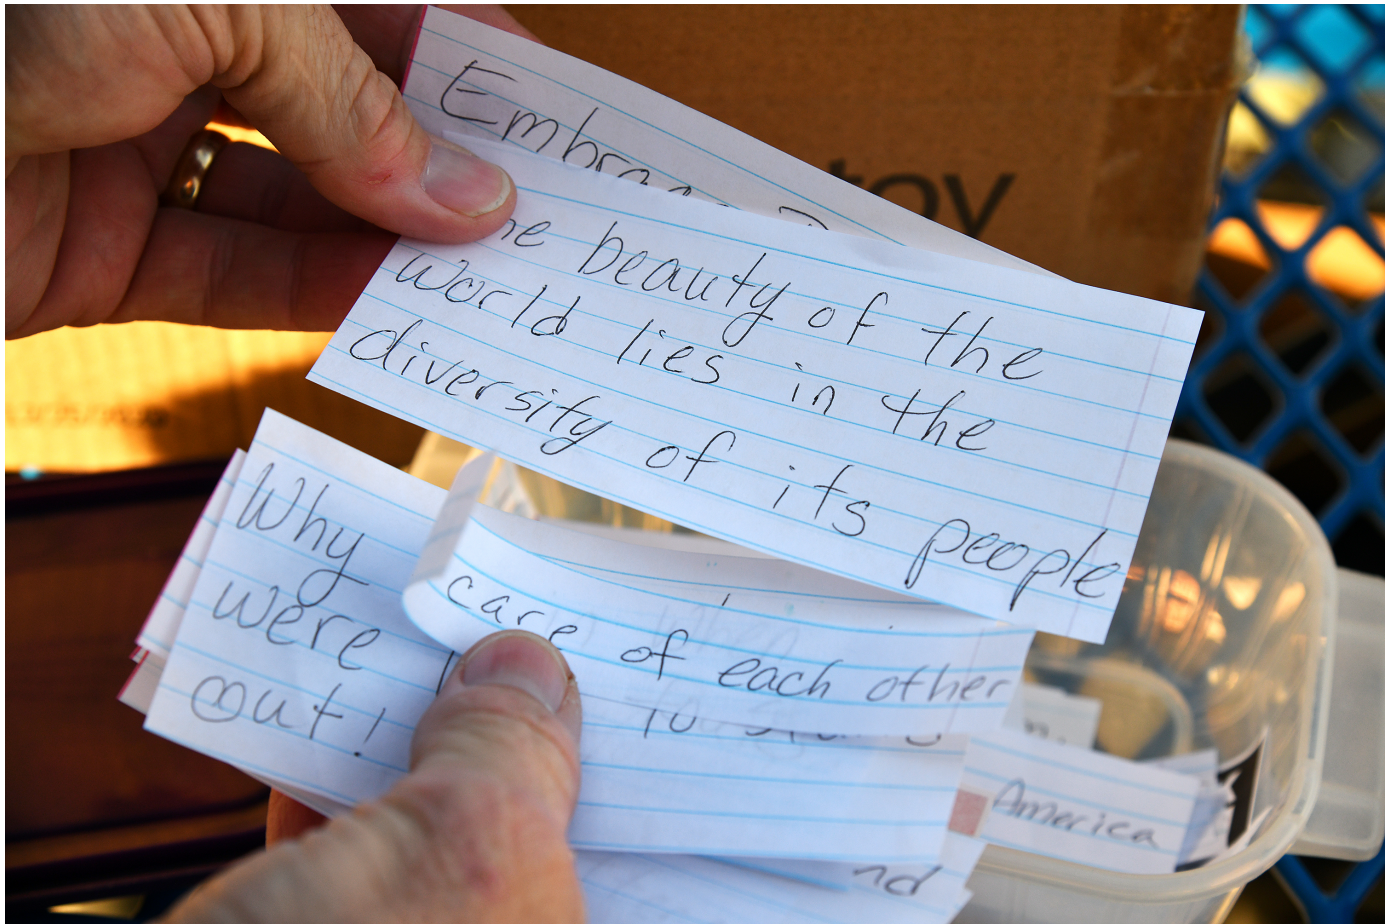 toy
he beauty of the
world lies in the
diversity of its people
Why
were
out!
care of each other
to
America
nd